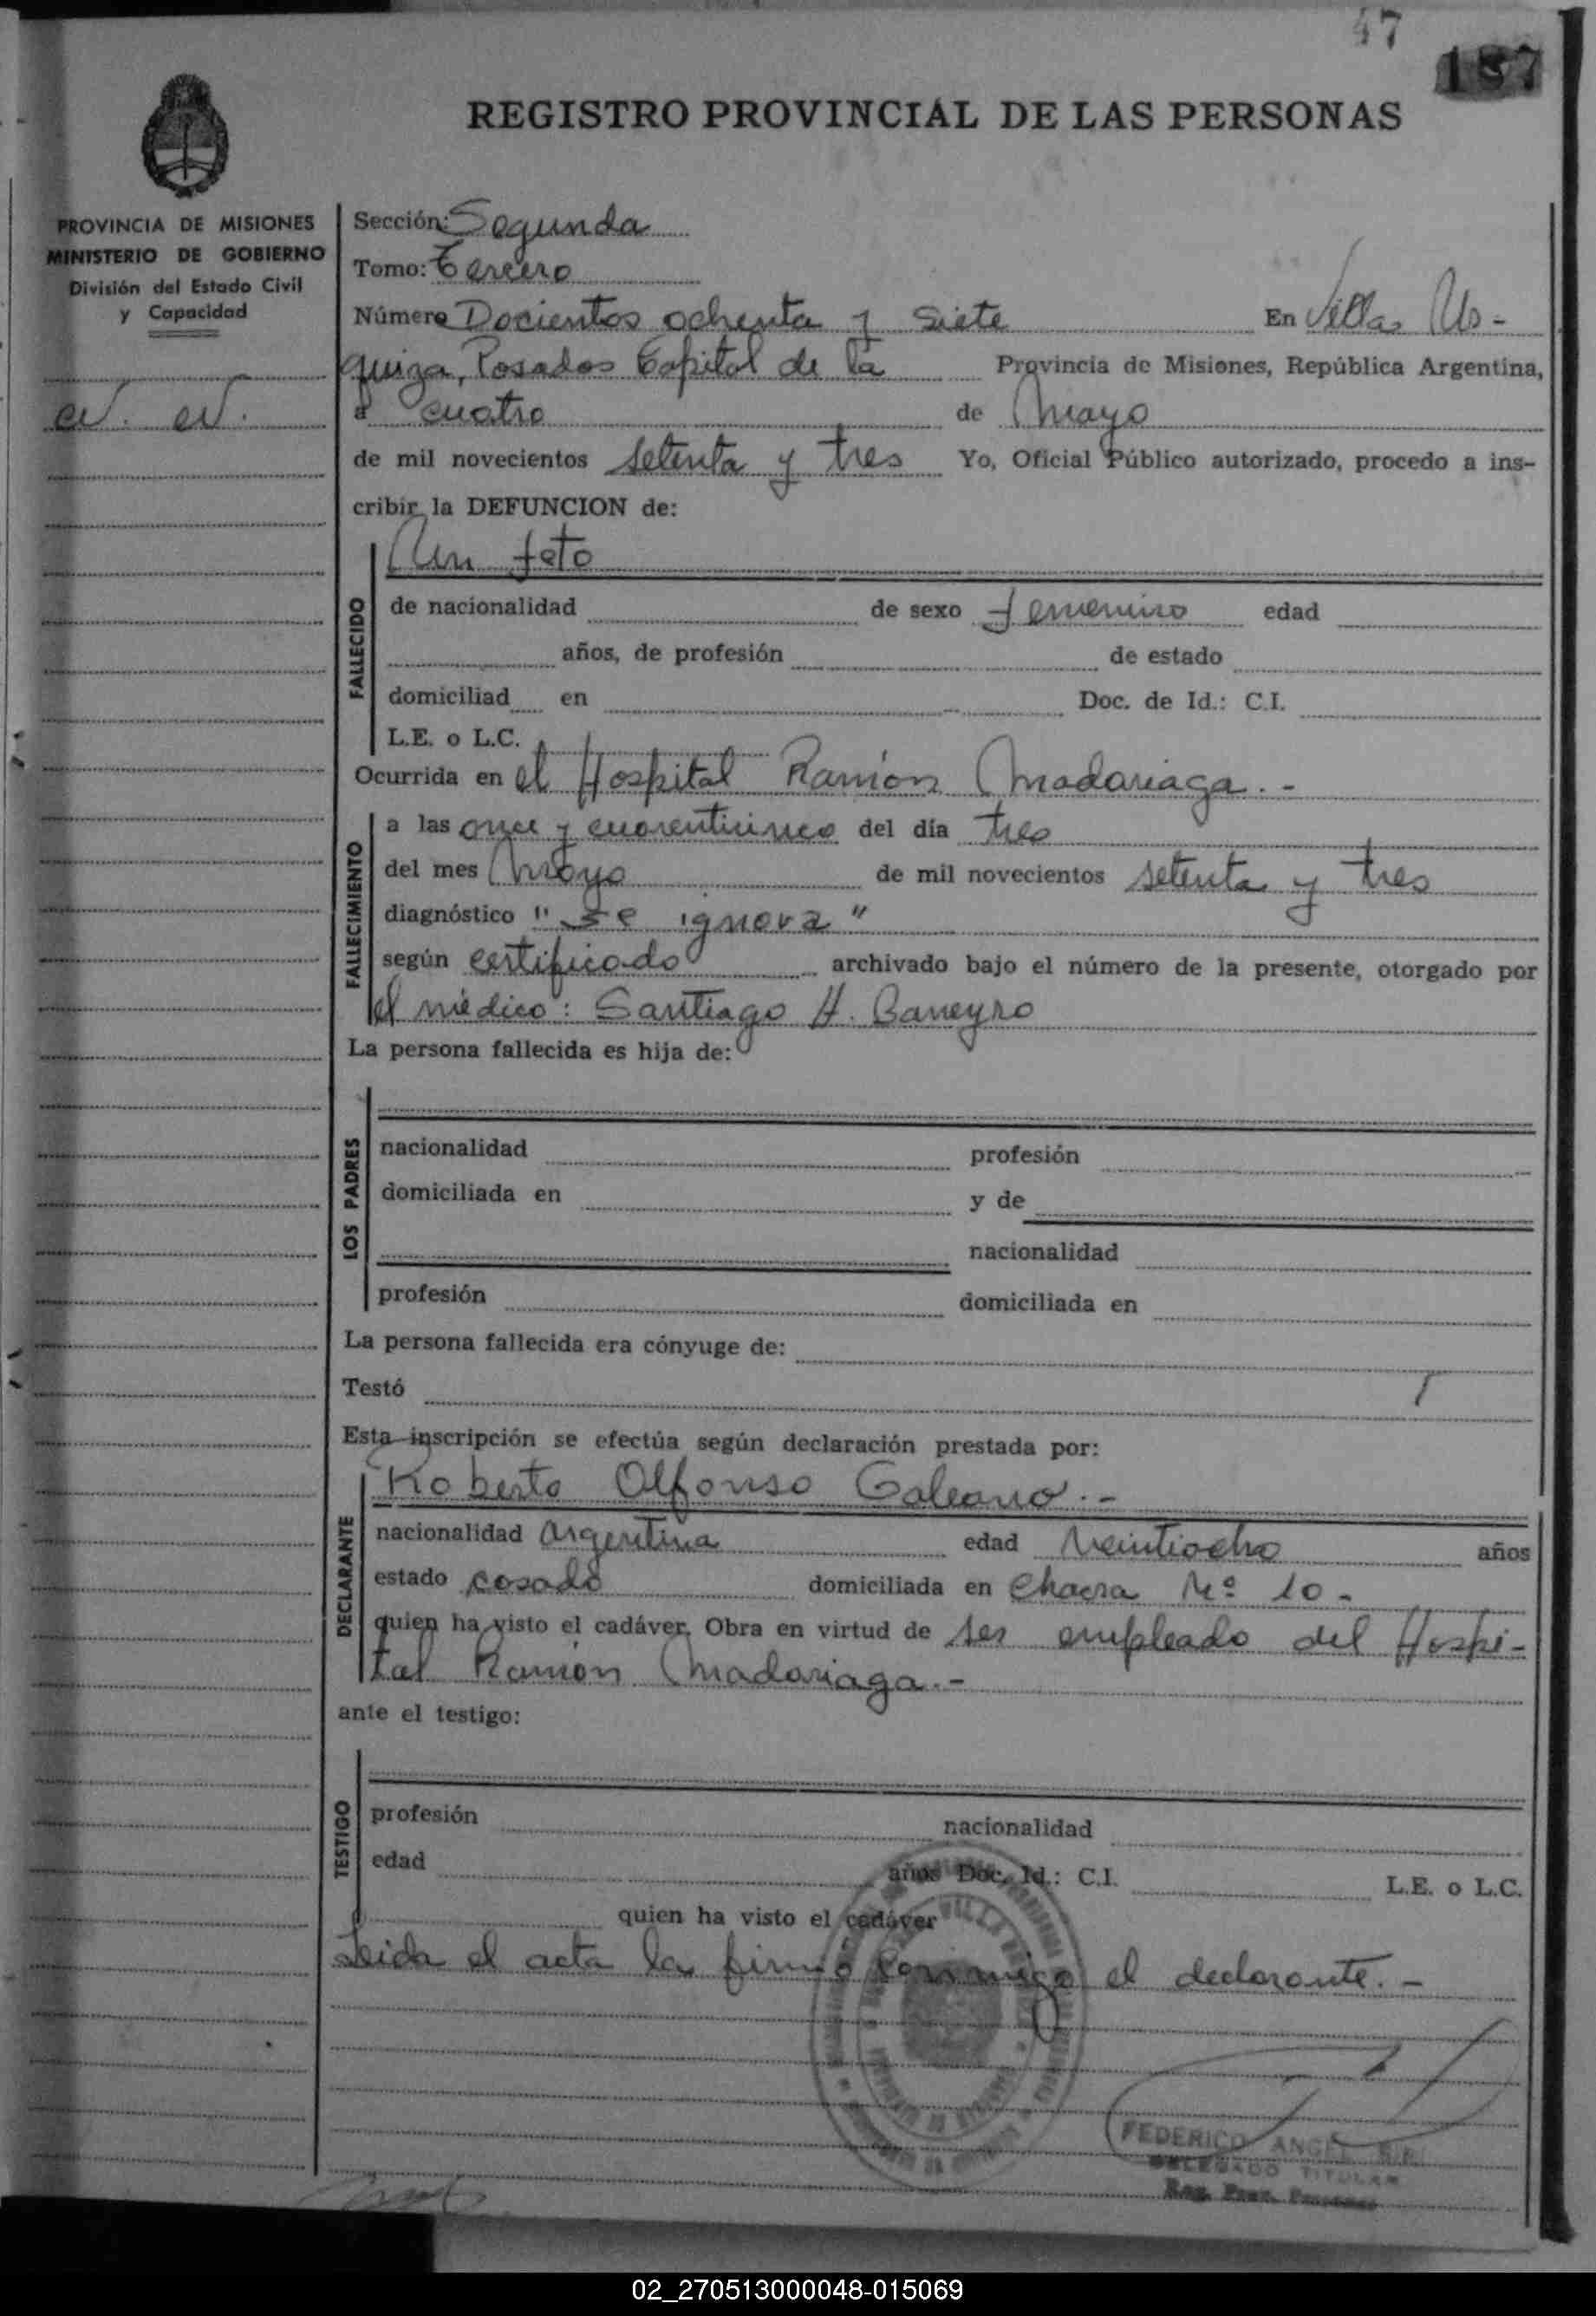 47
187
REGISTRO PROVINCIAL DE LAS PERSONAS
PROVINCIA DE MISIONES
MINISTERIO DE GOBIERNO
División del Estado Civil
y Capacidad
Sección: Segunda
Tomo: Tercero
Número Docientos ochenta y siete En Villa Us-
quiza, Posadas Capital de la Provincia de Misiones, República Argentina,
a cuatro de Mayo
de mil novecientos setenta y tres Yo, Oficial Público autorizado, procedo a ins-
cribir la DEFUNCION de:
Un feto
FALLECIDO
de nacionalidad de sexo femenino edad
años, de profesión de estado
domiciliad en Doc. de Id.: C.I.
L.E. o L.C.
Ocurrida en el Hospital Ramón Madariaga.-
FALLECIMIENTO
a las once y cuarenticinco del día tres
del mes Mayo de mil novecientos setenta y tres
diagnóstico "se ignora"
según certificado archivado bajo el número de la presente, otorgado por
el médico: Santiago H. Baneyro
La persona fallecida es hija de:
LOS PADRES
nacionalidad profesión
domiciliada en y de
nacionalidad
profesión domiciliada en
La persona fallecida era cónyuge de:
Testó
Esta inscripción se efectúa según declaración prestada por:
Roberto Alfonso Galeano.-
DECLARANTE
nacionalidad Argentina edad veintiocho años
estado casado domiciliada en Chacra Nº 10-
quien ha visto el cadáver. Obra en virtud de ser empleado del Hospi-
tal Ramón Madariaga.-
ante el testigo:
TESTIGO
profesión nacionalidad
edad años Doc. Id.: C.I. L.E. o L.C.
quien ha visto el cadáver
Leida el acta la firmó conmigo el declarante.-
FEDERICO ANGEL
DELEGADO TITULAR
Reg. Prov. Personas
02_270513000048-015069